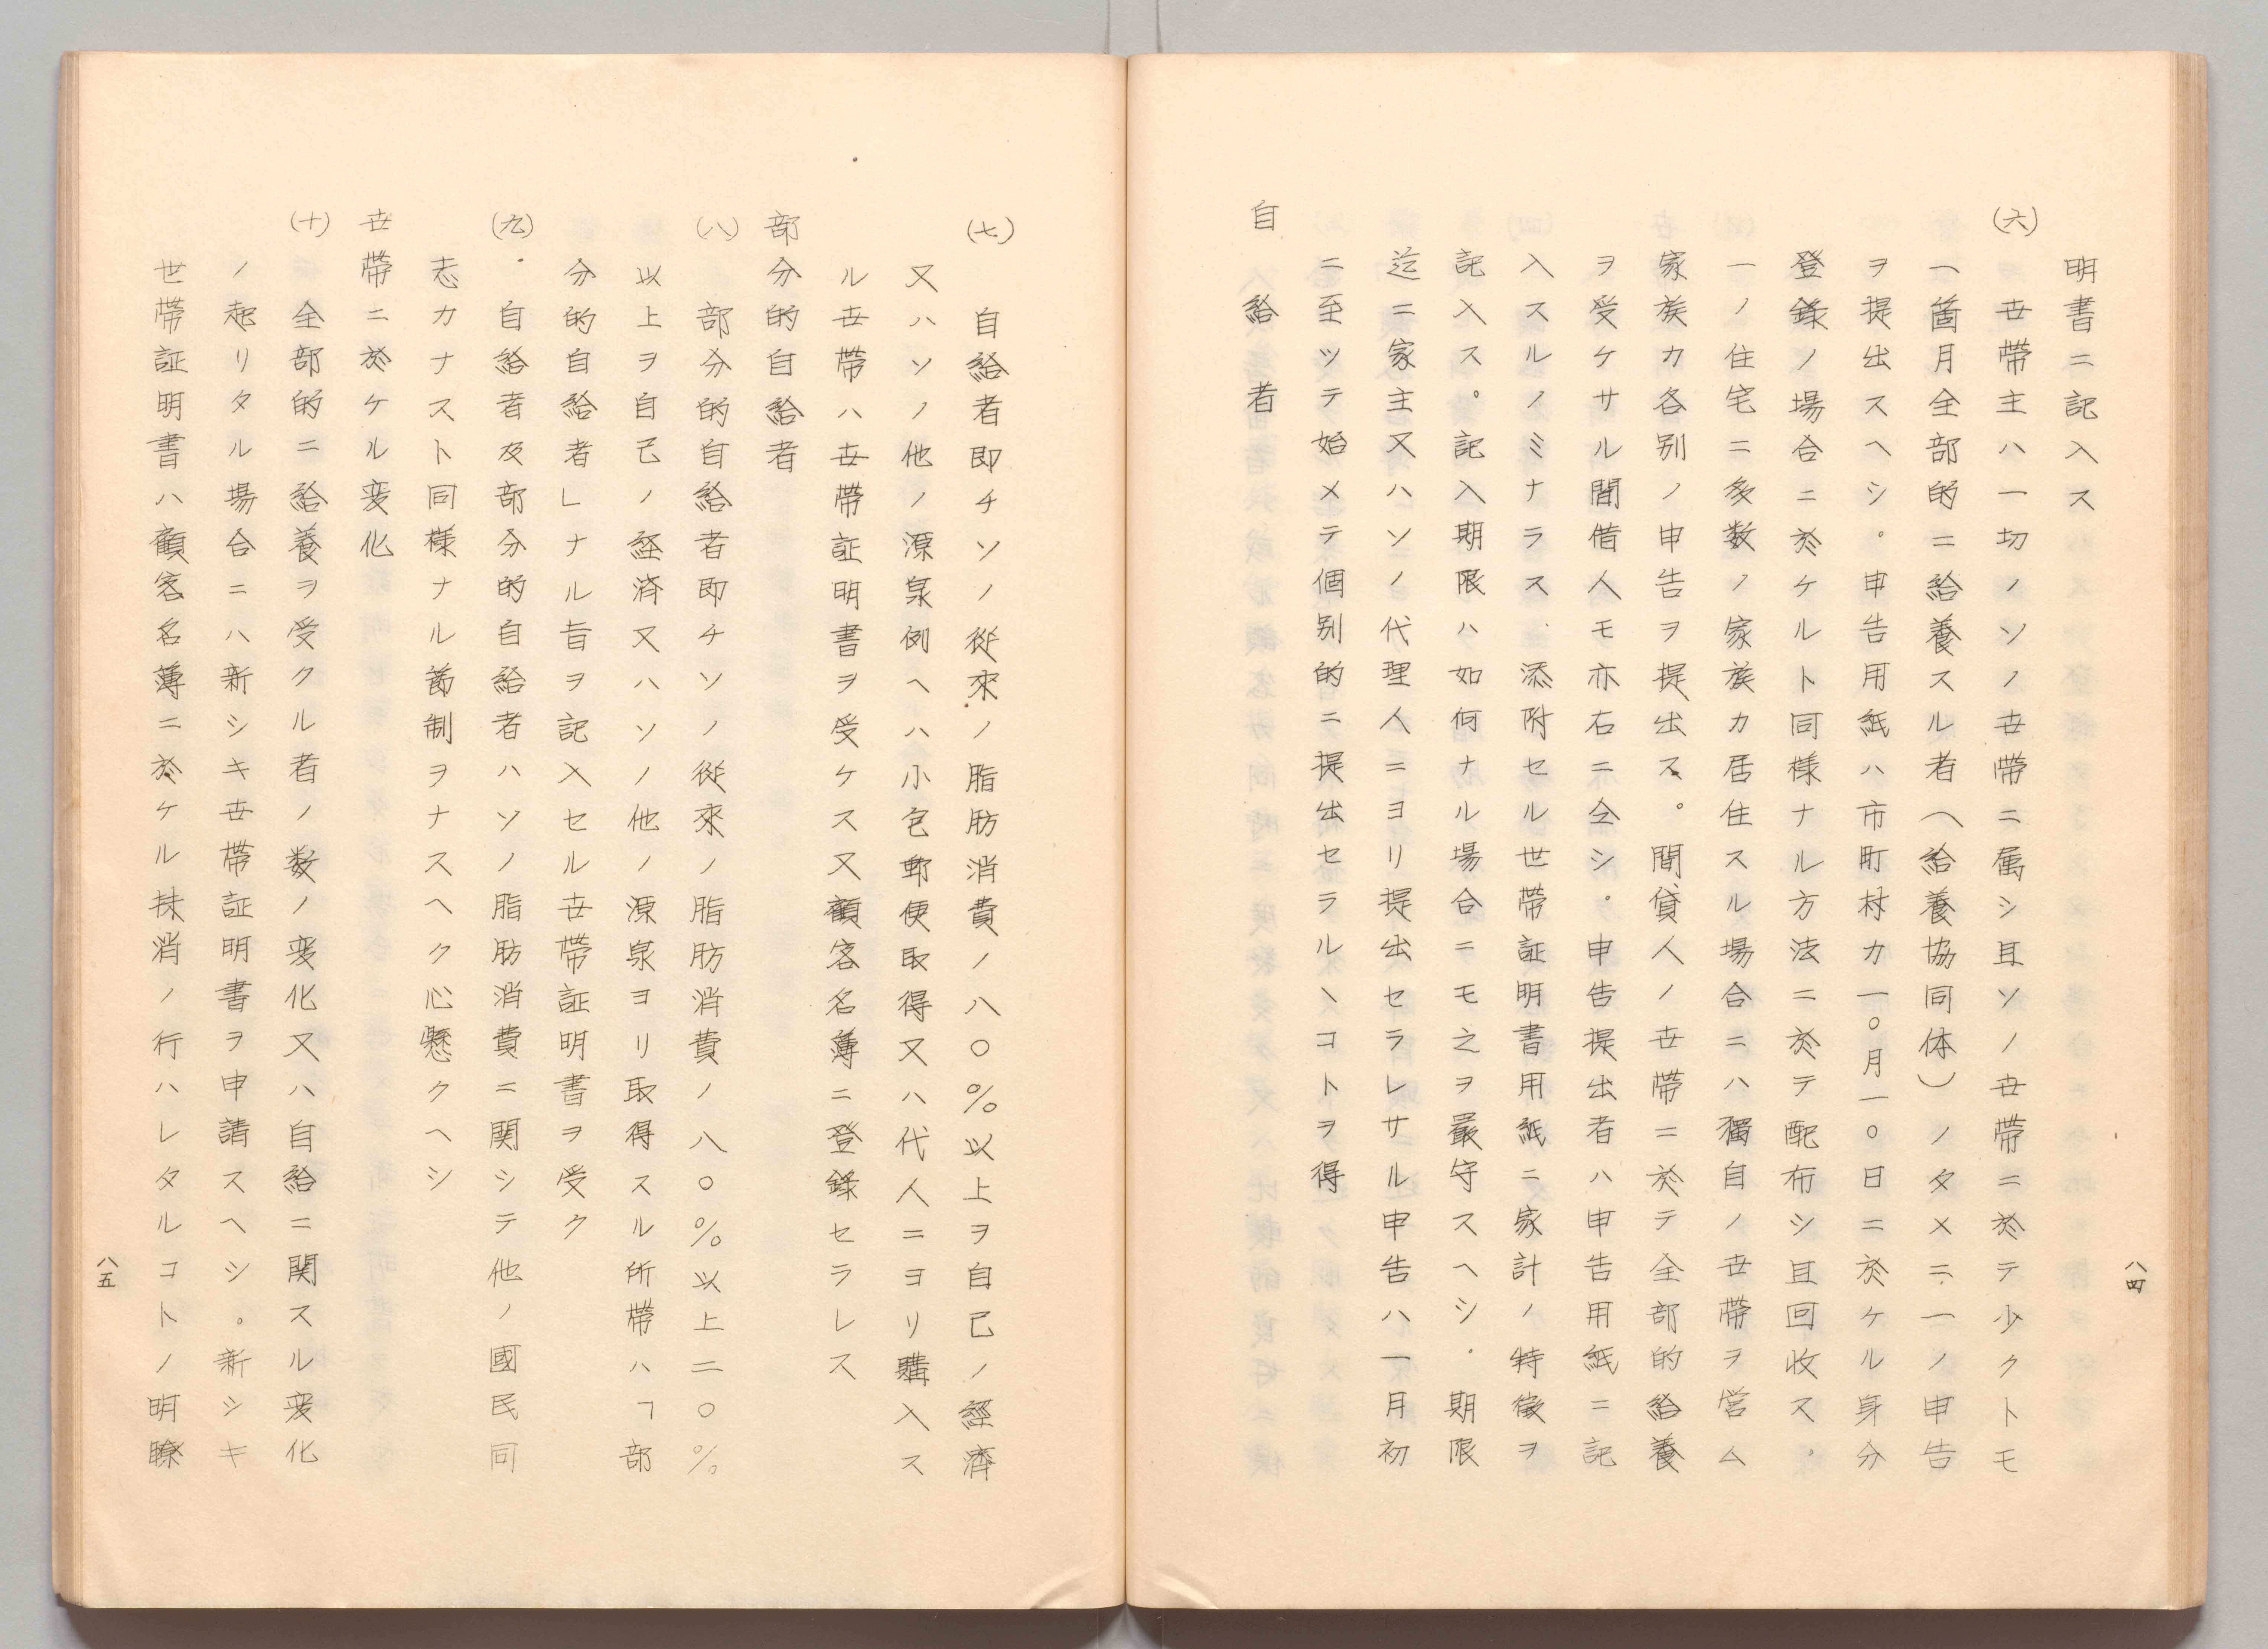 明書ニ記入ス
(六) 世帯主ハ一切ノソノ世帯ニ属シ且ソノ世帯ニ於テ少クトモ
一箇月全部的ニ給養スル者(給養協同体)ノタメニ一ノ申告
ヲ提出スヘシ。申告用紙ハ市町村カ一〇月一〇日ニ於ケル身分
登錄ノ場合ニ於ケルト同様ナル方法ニ於テ配布シ且回收ス。
一ノ住宅ニ多数ノ家族カ居住スル場合ニハ獨自ノ世帯ヲ営ム
家族カ各別ノ申告ヲ提出ス。間貸人ノ世帯ニ於テ全部的給養
ヲ受ケサル間借人モ亦右ニ仝シ.申告提出者ハ申告用紙ニ記
入スルノミナラス添附セル世帯証明書用紙ニ家計ノ特徴ヲ
記入ス。記入期限ハ如何ナル場合ニモ之ヲ嚴守スヘシ.期限
迄ニ家主又ハソノ代理人ニヨリ提出セラレサル申告ハ一月初
ニ至ツテ始メテ個別的ニ提出セラルヽコトヲ得
自給者
八四
(七) 自給者即チソノ從來ノ脂肪消費ノ八〇%以上ヲ自己ノ經濟
又ハソノ他ノ源泉例ヘハ小包郵便取得又ハ代人ニヨリ購入ス
ル世帯ハ世帯証明書ヲ受ケス又顧客名簿ニ登錄セラレス
部分的自給者
(八) 部分的自給者即チソノ從來ノ脂肪消費ノ八〇%以上二〇%
以上ヲ自己ノ経済又ハソノ他ノ源泉ヨリ取得スル所帯ハ「部
分的自給者」ナル旨ヲ記入セル世帯証明書ヲ受ク
(九).自給者及部分的自給者ハソノ脂肪消費ニ関シテ他ノ國民同
志カナスト同様ナル節制ヲナスヘク心懸クヘシ
世帯ニ於ケル変化
(十) 全部的ニ給養ヲ受クル者ノ数ノ変化又ハ自給ニ関スル変化
ノ起リタル場合ニハ新シキ世帯証明書ヲ申請スヘシ。新シキ
世帯証明書ハ顧客名簿ニ於ケル抹消ノ行ハレタルコトノ明瞭
八五